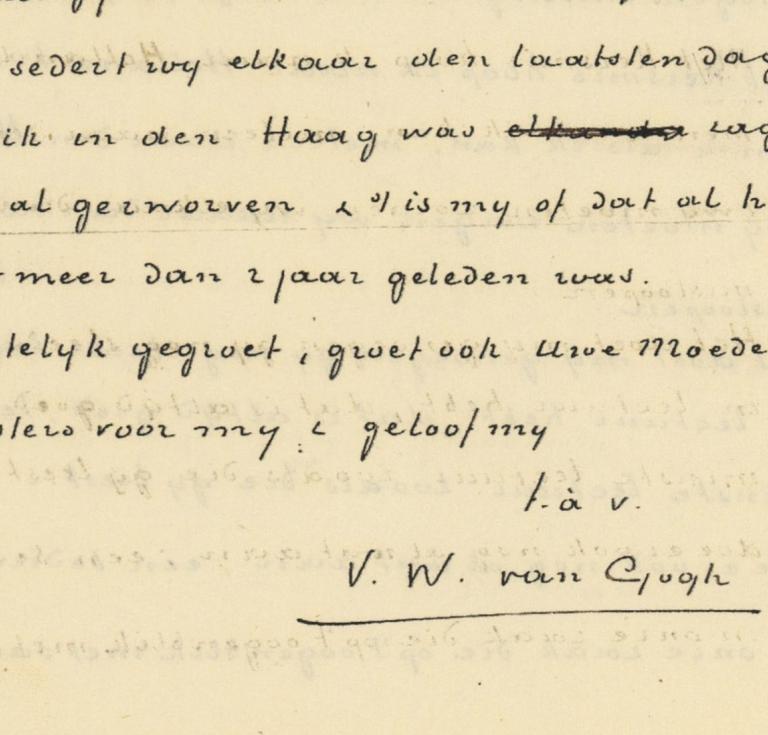 sedert wy elkaar den laatsten dag
ik in den Haag was elkander zag
al geworven & 't is my of dat al h
meer dan 2 jaar geleden was.
telyk gegroet, groet ook Uwe Moede
sters voor my & geloof my
t. à v.
V. W. van Gogh